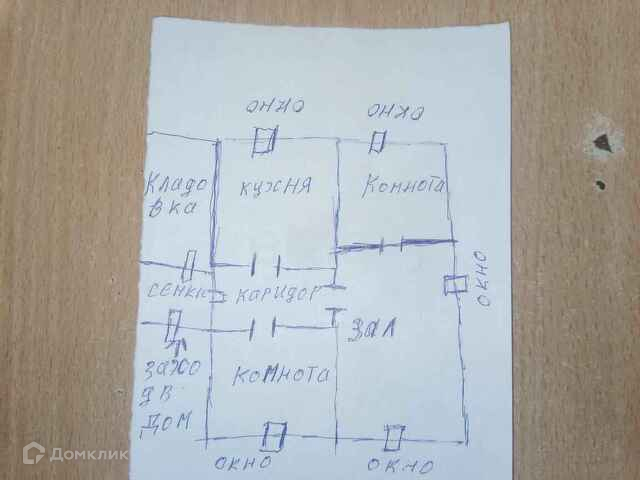 ОКНО
ОКНО
КЛАДО
ВКА
КУХНЯ
КОМНОТА
СЕНКИ
КАРИДОР
ОКНО
ЗАЛ
ЗАХО
ДВ
ДОМ
КОМНОТА
ОКНО
ОКНО
Домклик